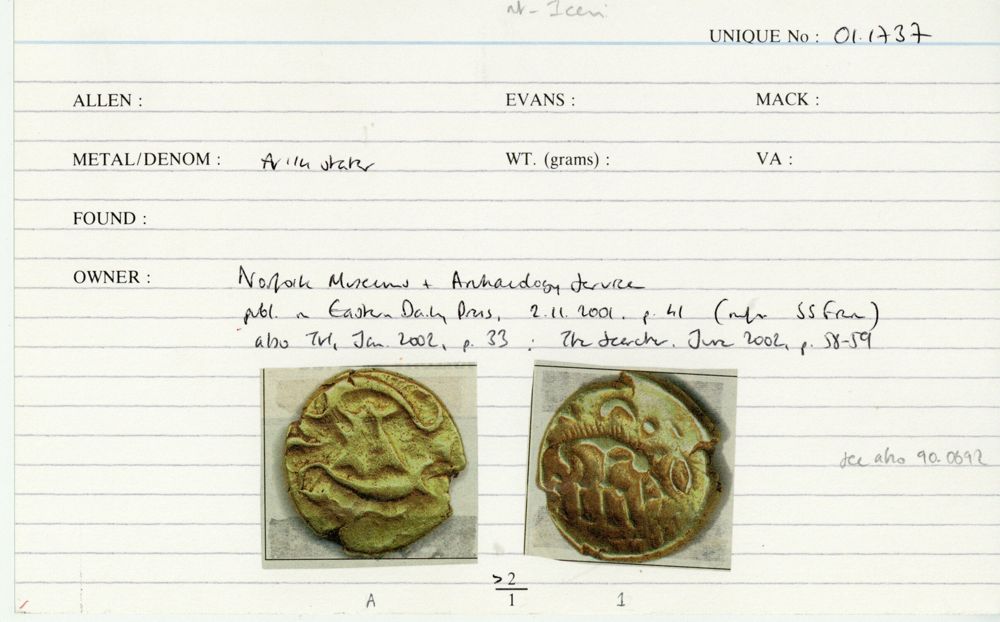 nt - Iceni
UNIQUE No : 01.1737
ALLEN : EVANS : MACK :
METAL/DENOM : stater WT. (grams) : VA :
FOUND :
OWNER : Norfolk Museums + Archaeology Service
publ. in Eastern Daily Press, 2.11.2001. p. 41 (info SS Frere)
also Jan. 2002, p. 33 ; The Searcher, June 2002, p. 58-59
see also 90.0692
>2
A 1 1